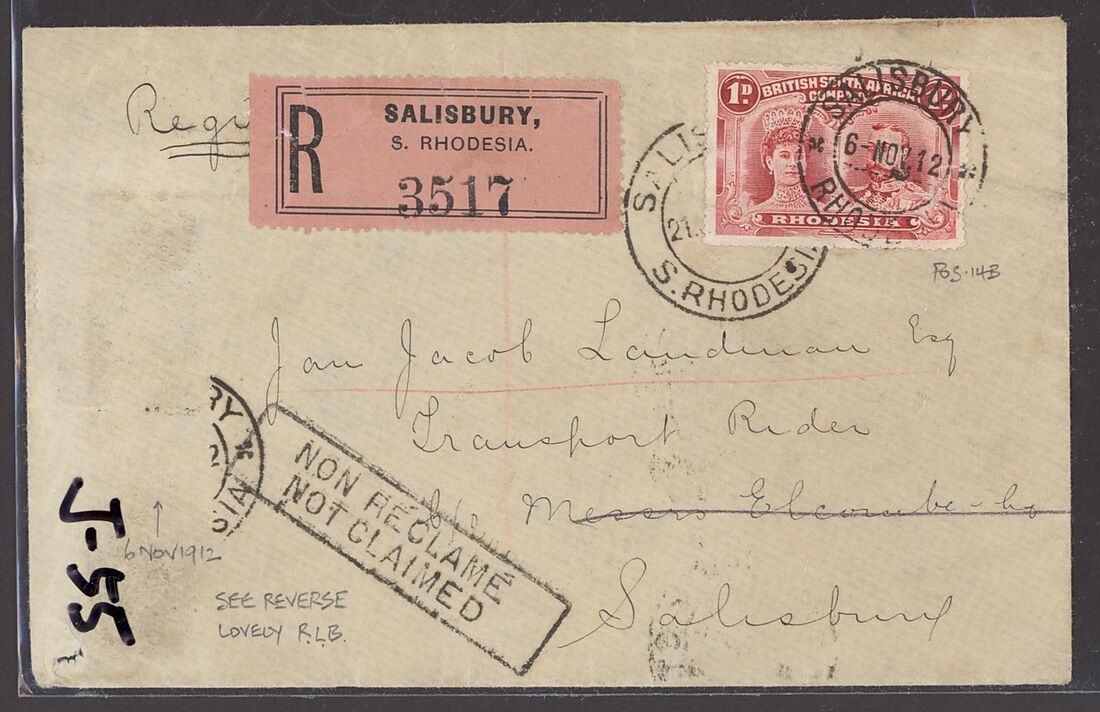 Regi
R
SALISBURY,
S. RHODESIA.
3517
1D
BRITISH SOUTH AFRICA
COMPANY
RHODESIA
SALISBURY
6-NOV 12
RHODESIA
SALIS
21.
S.RHODESIA
PGS.14B
Jan Jacob Landman Esq
Transport Rider
c/o Messrs Elcombe & Co
Salisbury
NON RECLAMÉ
NOT CLAIMED
RY
2
SIA
J-55
6 NOV 1912
SEE REVERSE
LOVELY R.L.B.